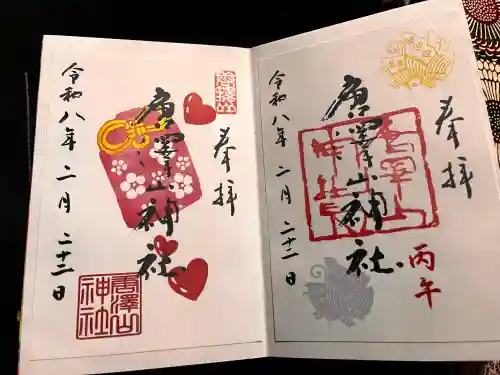 奉拝
唐澤山神社
丙午
令和八年二月二十二日
奉拝
唐澤山神社
令和八年二月二十二日
唐澤山
神社